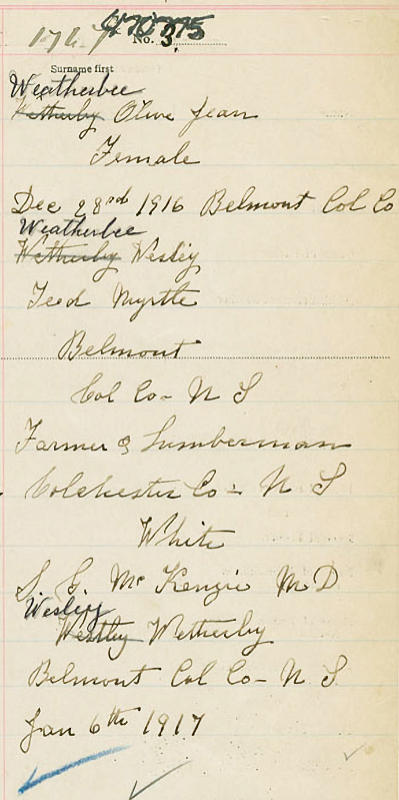 470775
No. 3
Surname first
Weatherbee
Wetherby Olive Jean
Female
Dec 28rd 1916 Belmont Col Co
Weatherbee
Wetherby Wesley
Teed Myrtle
Belmont
Col Co - N S
Farmer & Lumberman
Colchester Co - N S
White
Mc Kenzie M D
Wesley
Westley Wetherby
Belmont Col Co - N S
Jan 6th 1917